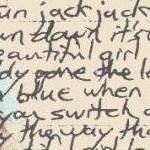 run jack jack
run down it's
beautiful girl
dy gone she lo
blue when
you switch o
the way tha